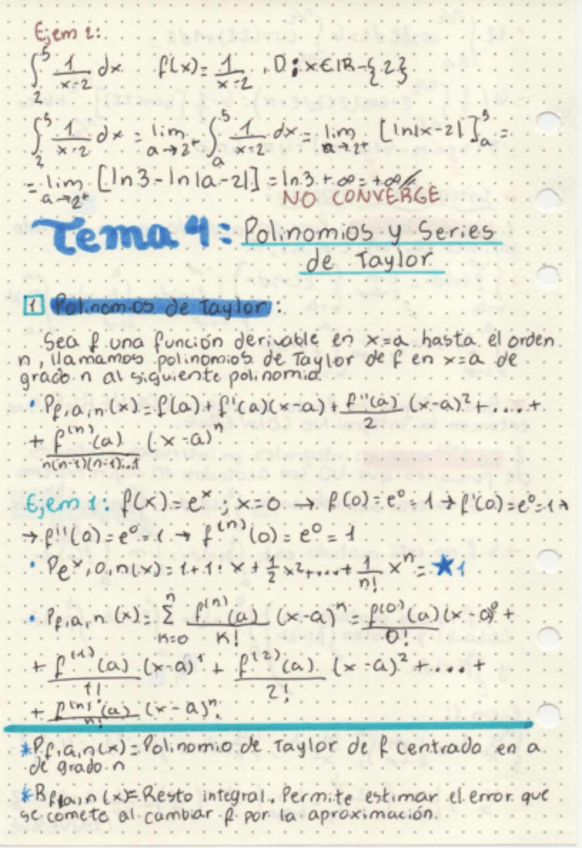 Ejem 2:
∫₂⁵ 1/(x-2) dx f(x)= 1/(x-2) , D: x∈ℝ-{2}
∫₂⁵ 1/(x-2) dx = lim a→2⁺ ∫ₐ⁵ 1/(x-2) dx = lim a→2⁺ [ln|x-2|]ₐ⁵ =
= lim a→2⁺ [ln3 - ln|a-2|] = ln3 + ∞ = +∞
NO CONVERGE
Tema 4: Polinomios y Series
de Taylor
1 Polinomios de Taylor:
Sea f una función derivable en x=a hasta el orden
n, llamamos polinomios de Taylor de f en x=a de
grado n al siguiente polinomio:
• P f,a,n (x) = f(a) + f'(a)(x-a) + f''(a)/2 (x-a)² + .... +
+ f⁽ⁿ⁾(a)/n(n-1)(n-1)...1 (x-a)ⁿ
Ejem 1: f(x)=eˣ ; x=0 → f(0)=e⁰=1 → f'(0)=e⁰=1 →
→ f''(0)=e⁰=1 → f⁽ⁿ⁾(0)=e⁰=1
• P eˣ,0,n(x) = 1+1·x+ 1/2 x² +....+ 1/n! xⁿ = ★1
• P f,a,n (x) = Σ n k=0 f⁽ⁿ⁾(a)/k! (x-a)ᵏ = f⁽⁰⁾(a)/0! (x-a)⁰ +
+ f⁽¹⁾(a)/1! (x-a)¹ + f⁽²⁾(a)/2! (x-a)² + .... +
+ f⁽ⁿ⁾(a)/n! (x-a)ⁿ
*P f,a,n (x) = Polinomio de Taylor de f centrado en a
de grado n
*R f,a,n (x) = Resto integral. Permite estimar el error que
se comete al cambiar f por la aproximación.